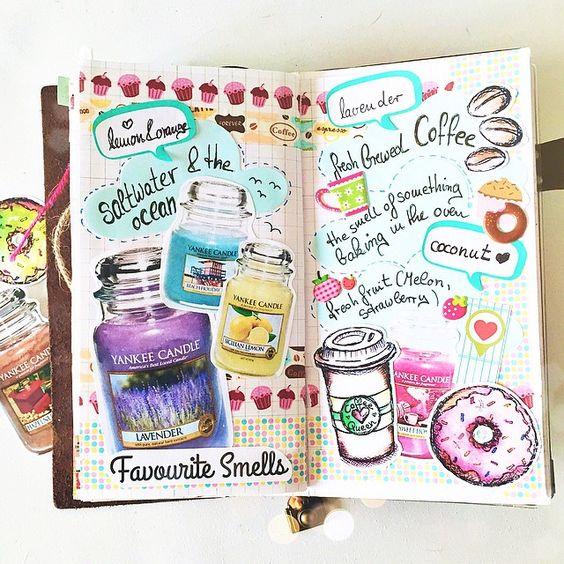 lemon & orange
FOREVER
Coffee
saltwater & the
ocean
YANKEE CANDLE
BEACH HOLIDAY
YANKEE CANDLE
SICILIAN LEMON
YANKEE CANDLE
America's Best Loved Candle
LAVENDER
Favourite Smells
lavender
espresso
fresh brewed Coffee
the smell of something
baking in the oven
coconut
fresh fruit (Melon,
strawberry)
YANKEE CANDLE
Coffee
Queen